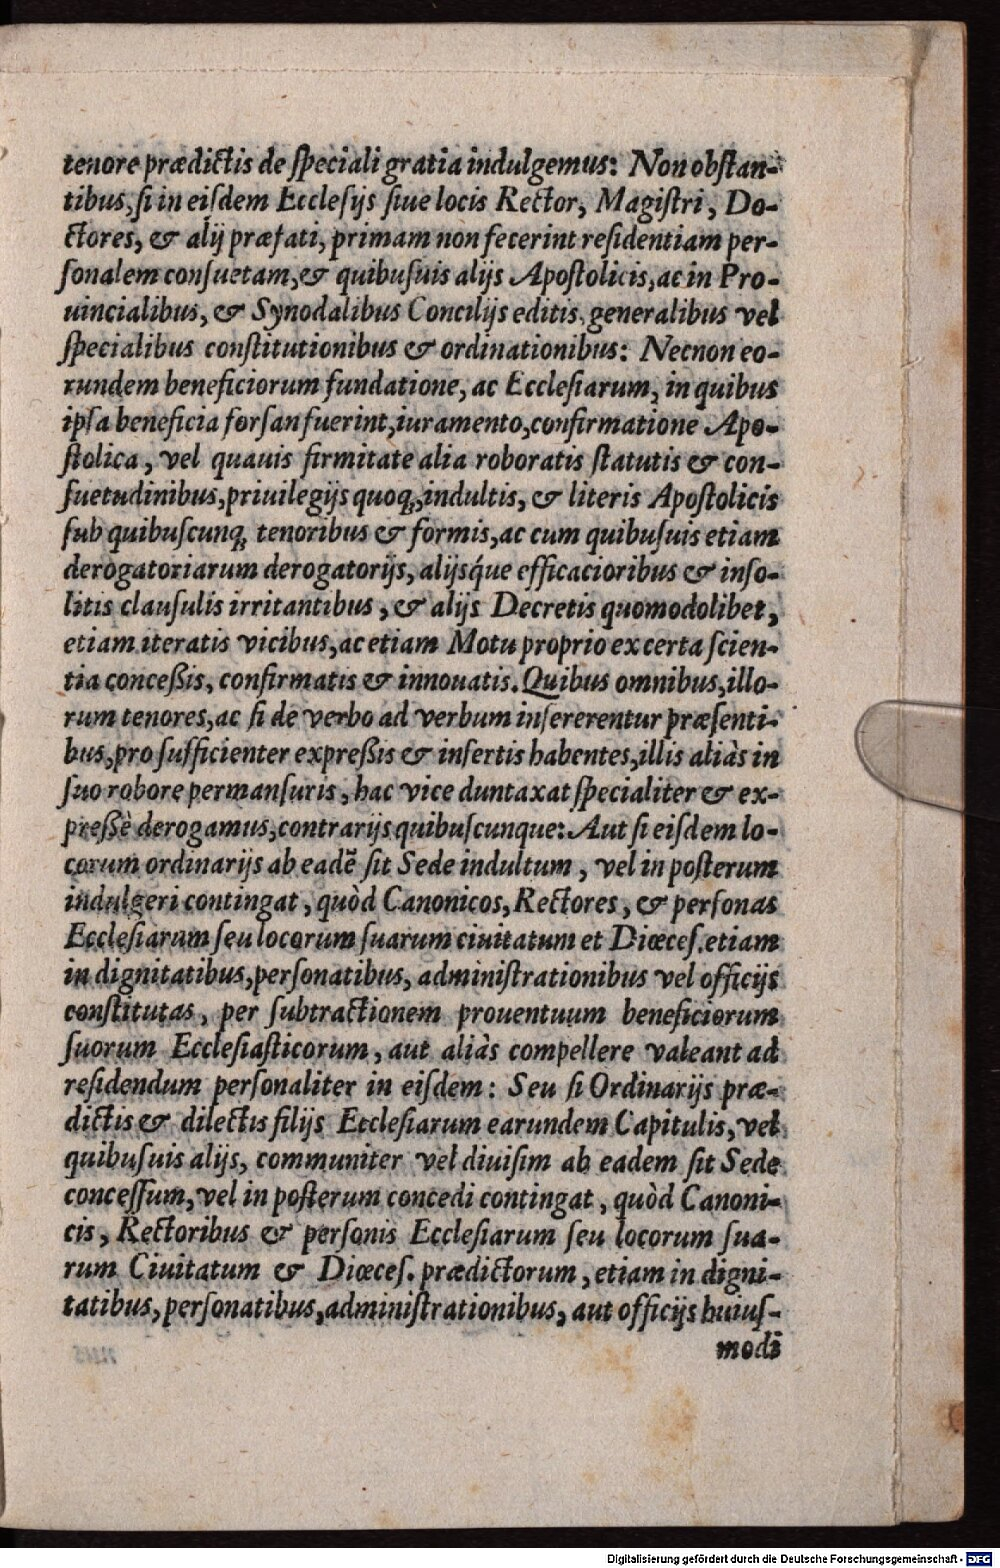 tenore prædictis de ſpeciali gratia indulgemus: Non obſtan-
tibus, ſi in eiſdem Eccleſijs ſiue locis Rector, Magiſtri, Do-
ctores, & alij præfati, primam non fecerint reſidentiam per-
ſonalem conſuetam, & quibuſuis alijs Apoſtolicis, ac in Pro-
uincialibus, & Synodalibus Concilijs editis, generalibus vel
ſpecialibus conſtitutionibus & ordinationibus: Necnon eo-
rundem beneficiorum fundatione, ac Eccleſiarum, in quibus
ipſa beneficia forſan fuerint, iuramento, confirmatione Apo-
ſtolica, vel quauis firmitate alia roboratis ſtatutis & con-
ſuetudinibus, priuilegijs quoq;, indultis, & literis Apoſtolicis
ſub quibuſcunq; tenoribus & formis, ac cum quibuſuis etiam
derogatoriarum derogatorijs, alijsq́ue efficacioribus & inſo-
litis clauſulis irritantibus, & alijs Decretis quomodolibet,
etiam iteratis vicibus, ac etiam Motu proprio ex certa ſcien-
tia conceßis, confirmatis & innouatis. Quibus omnibus, illo-
rum tenores, ac ſi de verbo ad verbum inſererentur præſenti-
bus, pro ſufficienter expreßis & inſertis habentes, illis aliàs in
ſuo robore permanſuris, hac vice duntaxat ſpecialiter & ex-
preßè derogamus, contrarijs quibuſcunque: Aut ſi eiſdem lo-
corum ordinarijs ab eadē ſit Sede indultum, vel in poſterum
indulgeri contingat, quòd Canonicos, Rectores, & perſonas
Eccleſiarum ſeu locorum ſuarum ciuitatum et Diœceſ. etiam
in dignitatibus, perſonatibus, adminiſtrationibus vel officijs
conſtitutas, per ſubtractionem prouentuum beneficiorum
ſuorum Eccleſiaſticorum, aut aliàs compellere valeant ad
reſidendum perſonaliter in eiſdem: Seu ſi Ordinarijs præ-
dictis & dilectis filijs Eccleſiarum earundem Capitulis, vel
quibuſuis alijs, communiter vel diuiſim ab eadem ſit Sede
conceſſum, vel in poſterum concedi contingat, quòd Canoni-
cis, Rectoribus & perſonis Eccleſiarum ſeu locorum ſua-
rum Ciuitatum & Diœceſ. prædictorum, etiam in digni-
tatibus, perſonatibus, adminiſtrationibus, aut officijs huiuſ-
modi
Digitalisierung gefördert durch die Deutsche Forschungsgemeinschaft - DFG